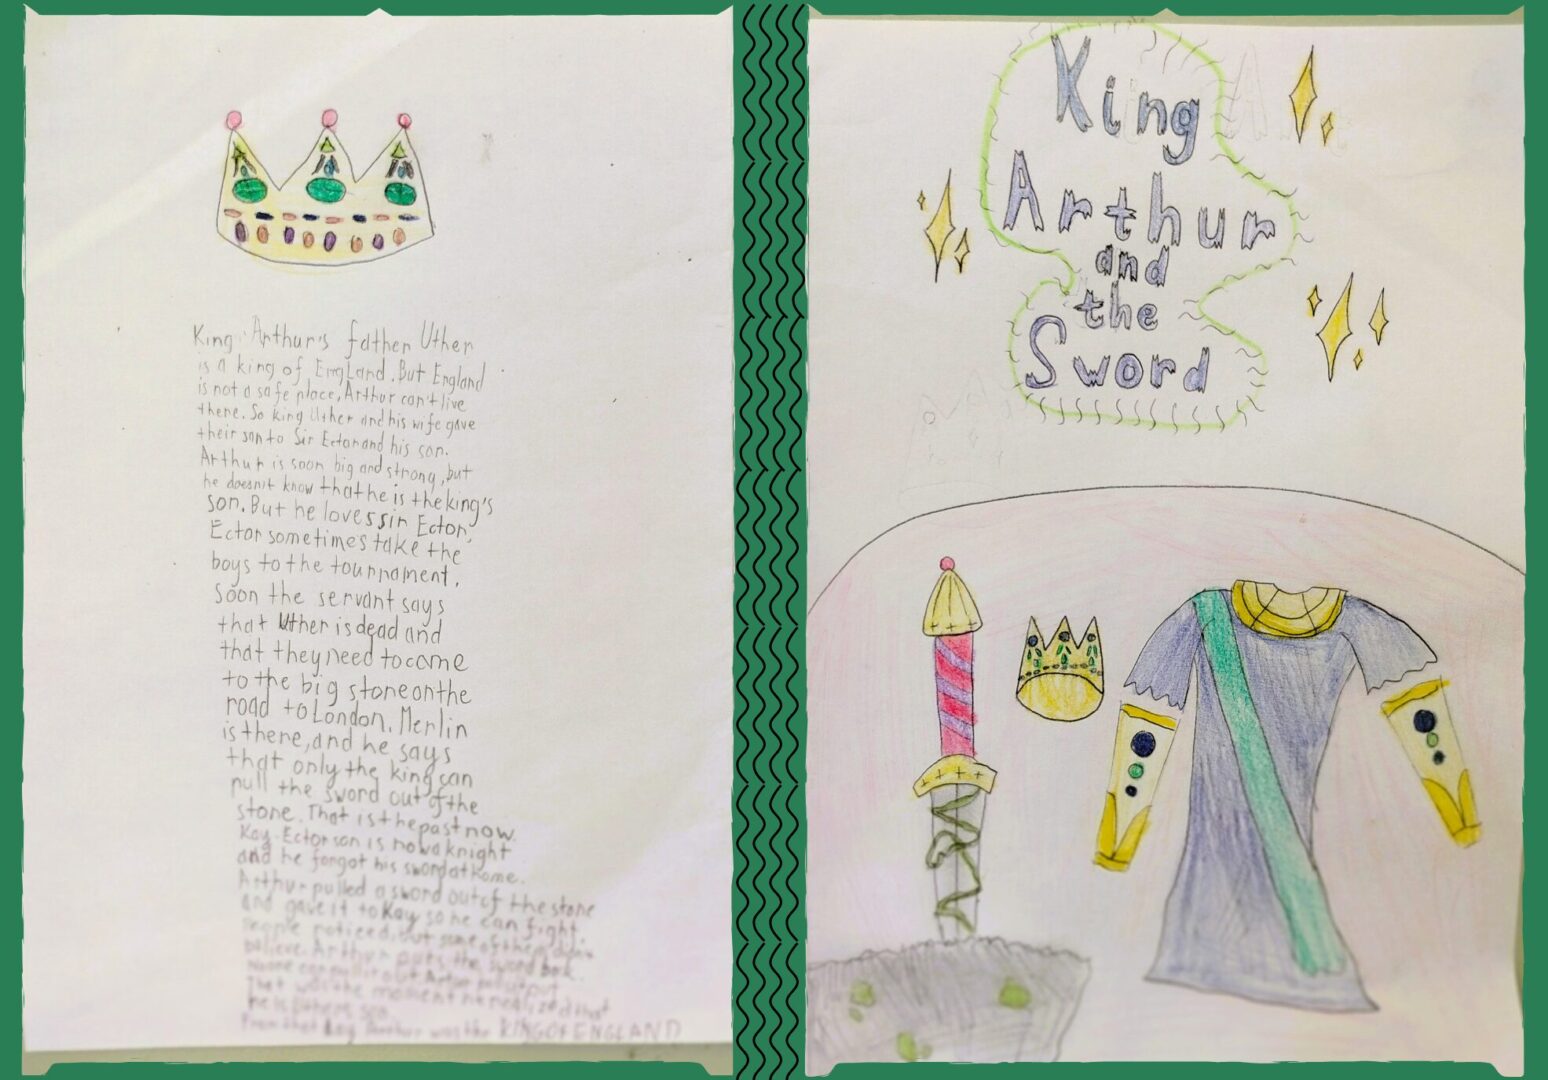 King Arthur's father Uther
is a king of England. But England
is not a safe place, Arthur can't live
there. So king Uther and his wife gave
their son to Sir Ector and his son.
Arthur is soon big and strong, but
he doesn't know that he is the king's
son. But he loves sir Ector.
Ector sometimes take the
boys to the tournament.
Soon the servant says
that Uther is dead and
that they need to come
to the big stone on the
road to London. Merlin
is there, and he says
that only the king can
pull the sword out of the
stone. That is the past now.
Kay. Ector son is now a knight
and he forgot his sword at home.
Arthur pulled a sword out of the stone
and gave it to Kay so he can fight.
People noticed, but some of them didn't
believe. Arthur puts the sword back.
That was the moment he realized that
he is Uthers son.
From that Arthur was the KING OF ENGLAND
King
Arthur
and
the
Sword